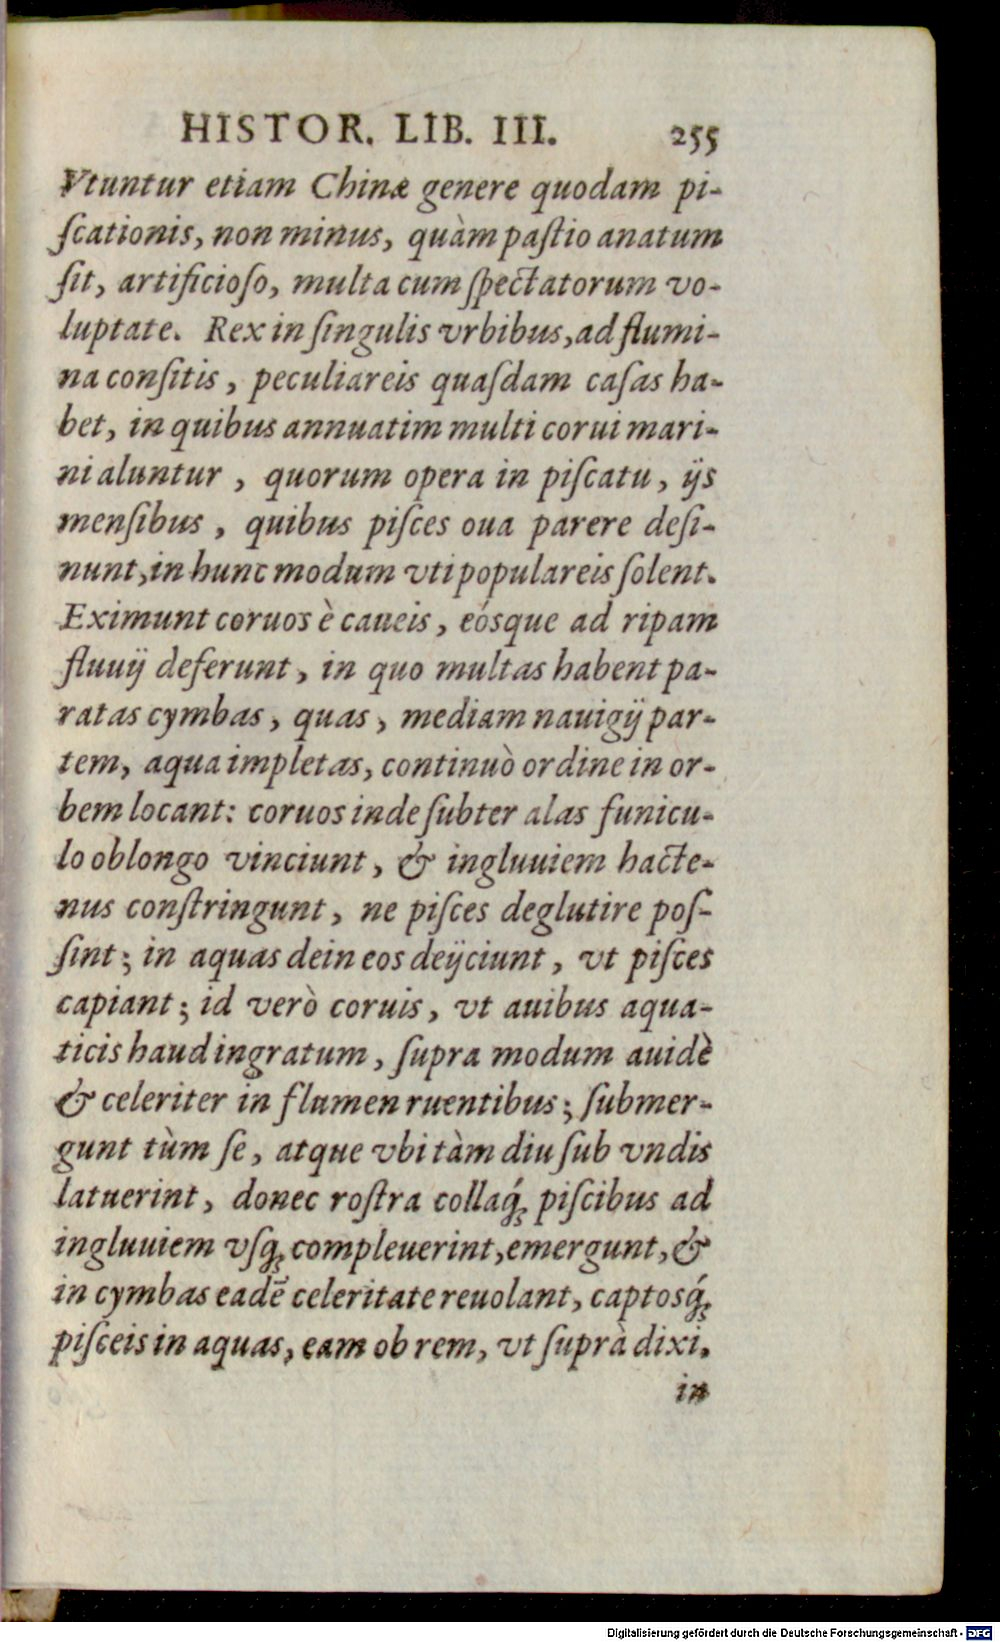 HISTOR. LIB. III. 255
Vtuntur etiam Chinæ genere quodam pi-
ſcationis, non minus, quàm paſtio anatum
ſit, artificioſo, multa cum ſpectatorum vo-
luptate. Rex in ſingulis vrbibus, ad flumi-
na conſitis, peculiareis quaſdam caſas ha-
bet, in quibus annuatim multi corui mari-
ni aluntur, quorum opera in piſcatu, ijs
menſibus, quibus piſces oua parere deſi-
nunt, in hunc modum vti populareis ſolent.
Eximunt coruos è caueis, eósque ad ripam
fluuij deferunt, in quo multas habent pa-
ratas cymbas, quas, mediam nauigij par-
tem, aqua impletas, continuò ordine in or-
bem locant: coruos inde ſubter alas funicu-
lo oblongo vinciunt, & ingluuiem hacte-
nus conſtringunt, ne piſces deglutire poſ-
ſint; in aquas dein eos deijciunt, vt piſces
capiant; id verò coruis, vt auibus aqua-
ticis haud ingratum, ſupra modum auidè
& celeriter in flumen ruentibus; ſubmer-
gunt tùm ſe, atque vbi tàm diu ſub vndis
latuerint, donec roſtra collaq́; piſcibus ad
ingluuiem vſq; compleuerint, emergunt, &
in cymbas eadē celeritate reuolant, captosq́;
piſceis in aquas, eam ob rem, vt ſuprà dixi,
in
Digitalisierung gefördert durch die Deutsche Forschungsgemeinschaft - DFG